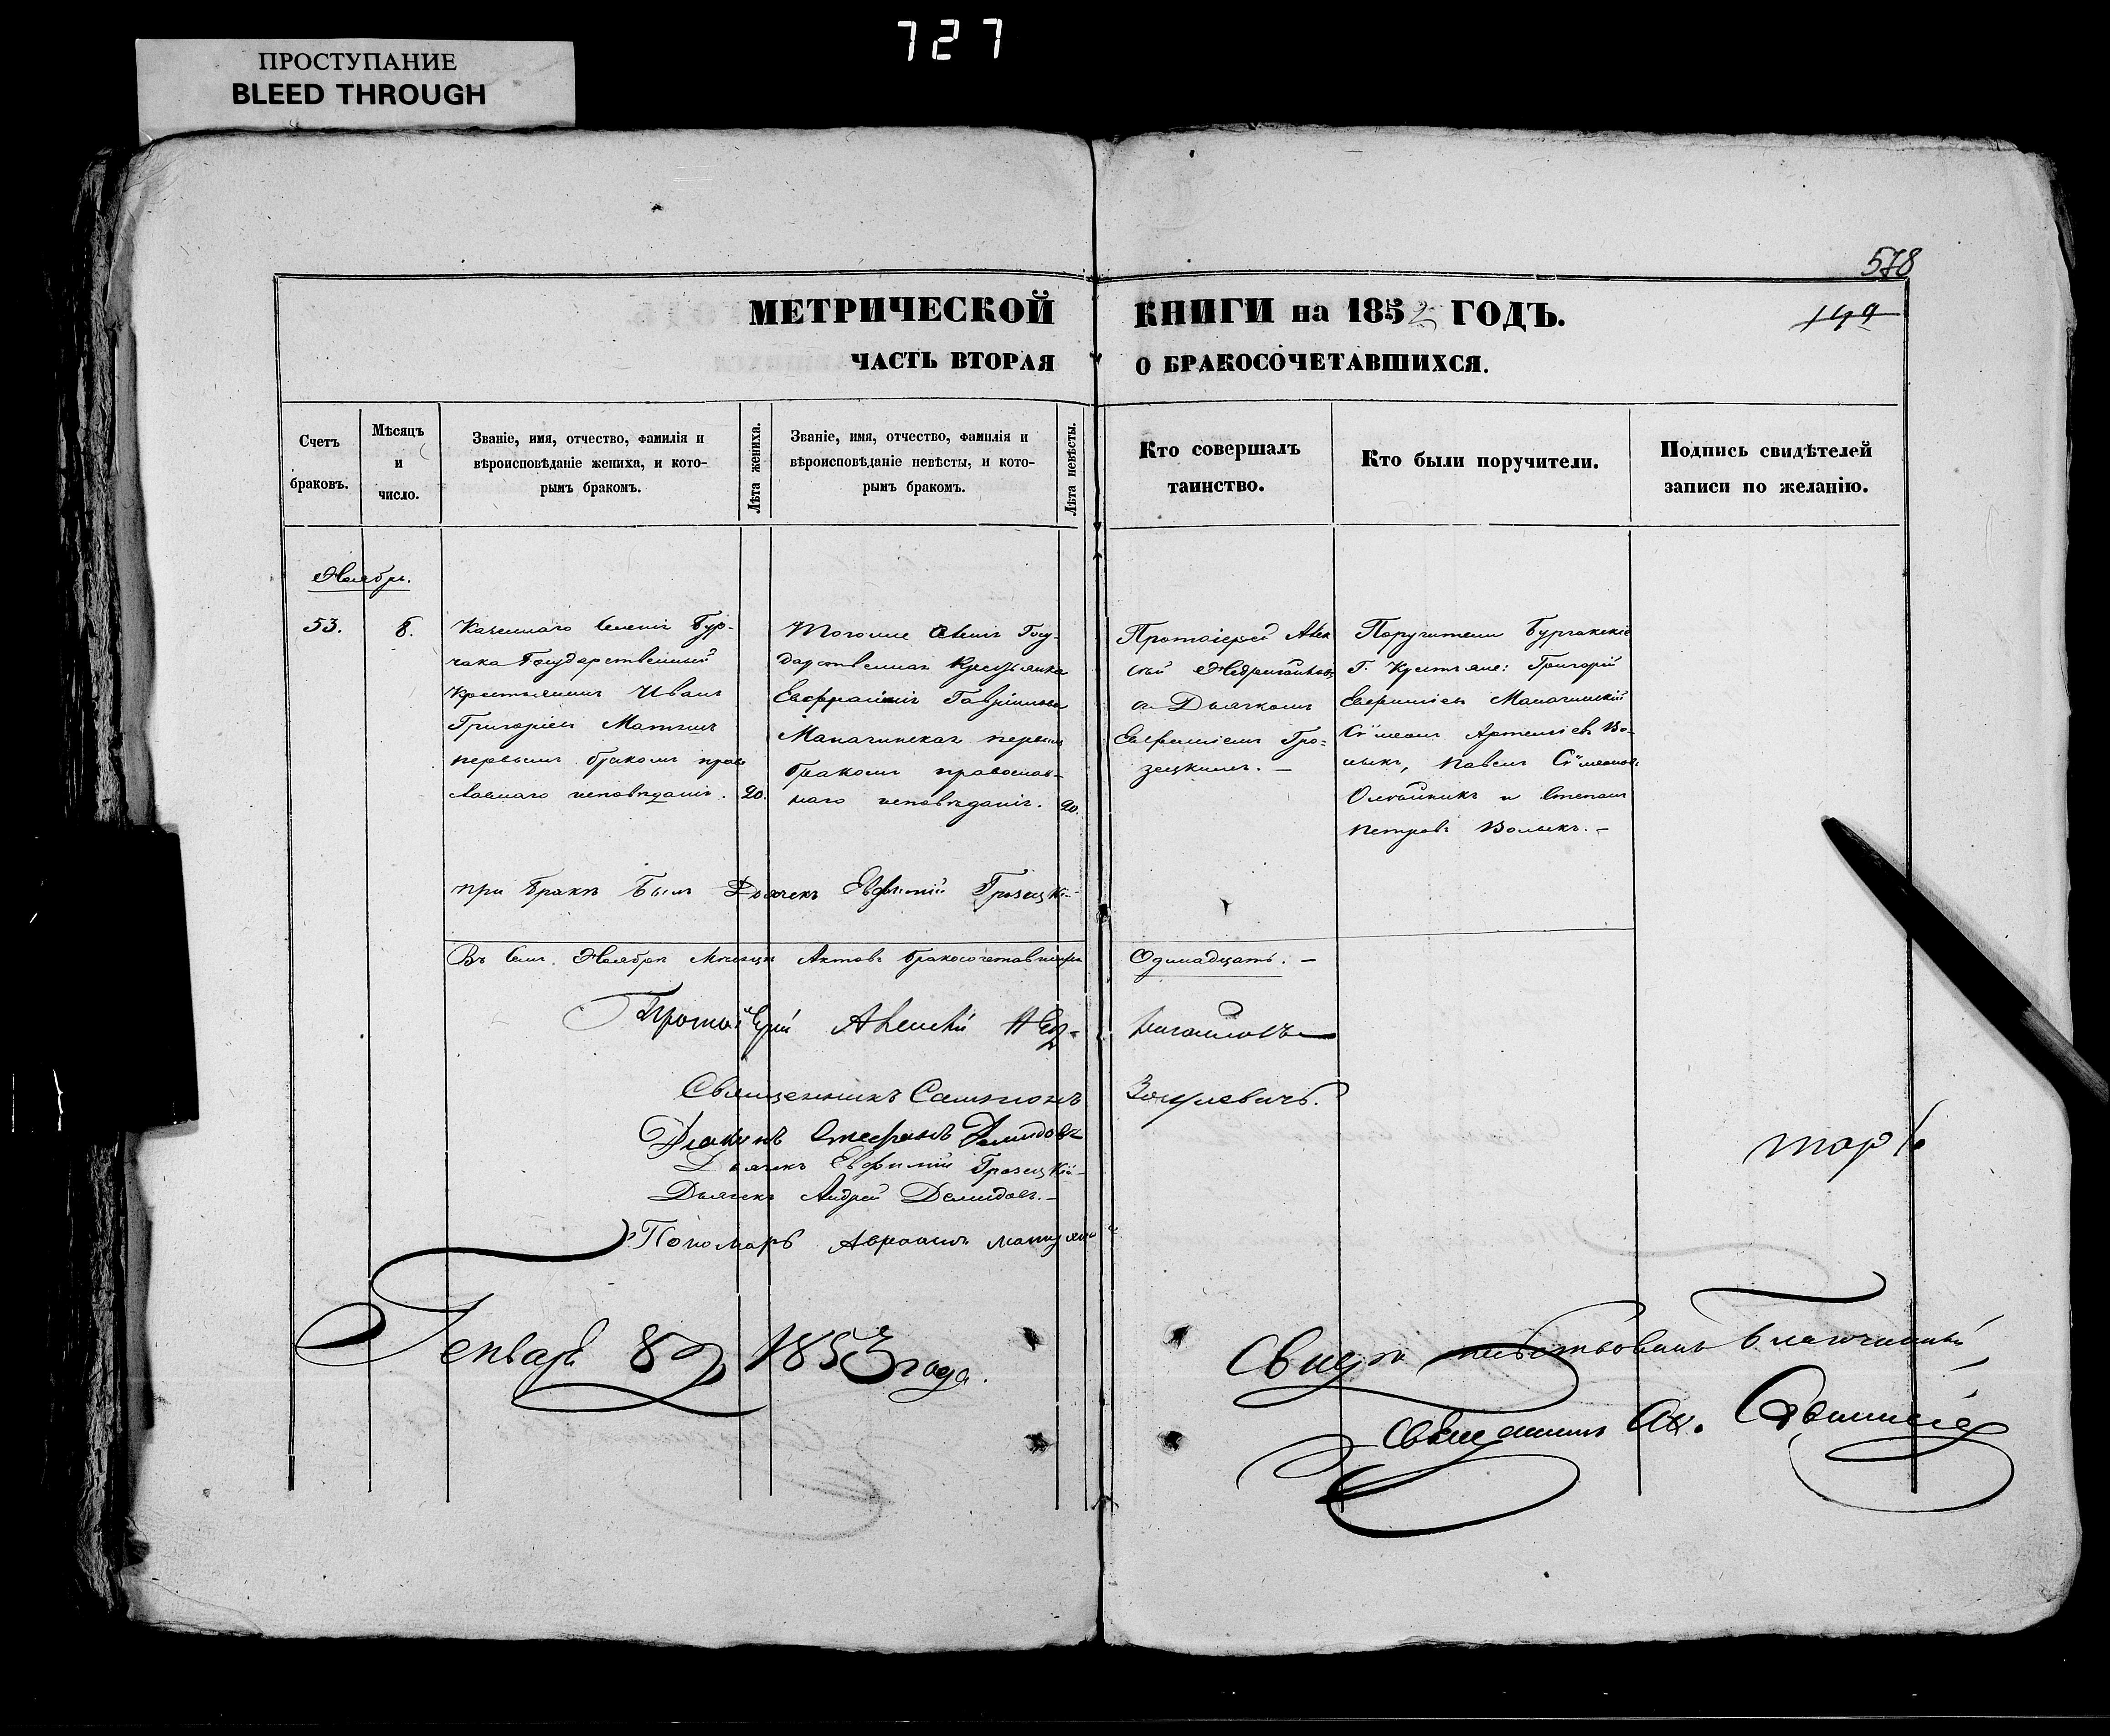 727
ПРОСТУПАНИЕ
BLEED THROUGH
578
МЕТРИЧЕСКОЙ КНИГИ на 1852 ГОДЪ.
149
ЧАСТЬ ВТОРАЯ О БРАКОСОЧЕТАВШИХСЯ.
Счетъ
браковъ.
Мѣсяцъ
и
число.
Званіе, имя, отчество, фамилія и
вѣроисповѣданіе жениха, и кото-
рымъ бракомъ.
Лѣта жениха.
Званіе, имя, отчество, фамилія и
вѣроисповѣданіе невѣсты, и кото-
рымъ бракомъ.
Лѣта невѣсты.
Кто совершалъ
таинство.
Кто были поручители.
Подпись свидѣтелей
записи по желанію.
Ноябрь.
53.
8.
Казеннаго Селенія Бур-
чака Государственный
Крестьянинъ Иванъ
Григоріевъ
первымъ бракомъ право
славнаго исповѣданія.
20.
Тогоже Селенія Госу-
дарственная Крестьянка
Гавріилова
первымъ
бракомъ православ-
наго исповѣданія.
20.
Протоіерей Алек
сѣй
съ Дьячкомъ
Евфиміемъ Гро-
зецкимъ. —
Поручители
Г. Крестьяне: Григорій
Евфиміевъ
Сѵмеонъ Артеміевъ Во-
лыкъ, Павелъ Сѵмеоновъ
Олѣйникъ и Степанъ
Петровъ Волыкъ. —
при бракѣ былъ Дьячекъ Евфимій Грозецкій
Въ семъ Ноябрѣ Мѣсяцѣ Актовъ бракосочетавшихся Одинадцать. —
Протоіерей Алексѣй
Священникъ Сампсонъ
Діаконъ Стефанъ Демидовъ
Дьячекъ Евфимій Грозецкій
Дьячекъ Андрей Демидовъ. —
Пономарь Авраамъ
Генварь 8 1853 года.
Свидѣтельствовалъ Благочинный
Священникъ